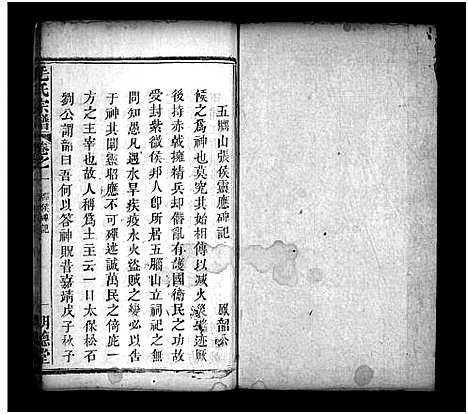 五腦山張侯靈應碑記
鳳韶公
侯之爲神也莫究其始相傳以減火　迹厥
後持赤戟擁精兵却僭亂有護國衛民之功故
受封紫微侯邦人卽所居五腦山立祠祀之無
問知愚凡遇水旱疾疫水火盜賊之變必以告
于神其聞憲昭應不可殫述誠萬民之倚庇一
方之主宰也故人稱爲土主云一日太保松石
劉公謂韶曰吾何以答神貺昔嘉靖戊子秋子
毛氏宗譜
卷之一
侯碑記
明德堂